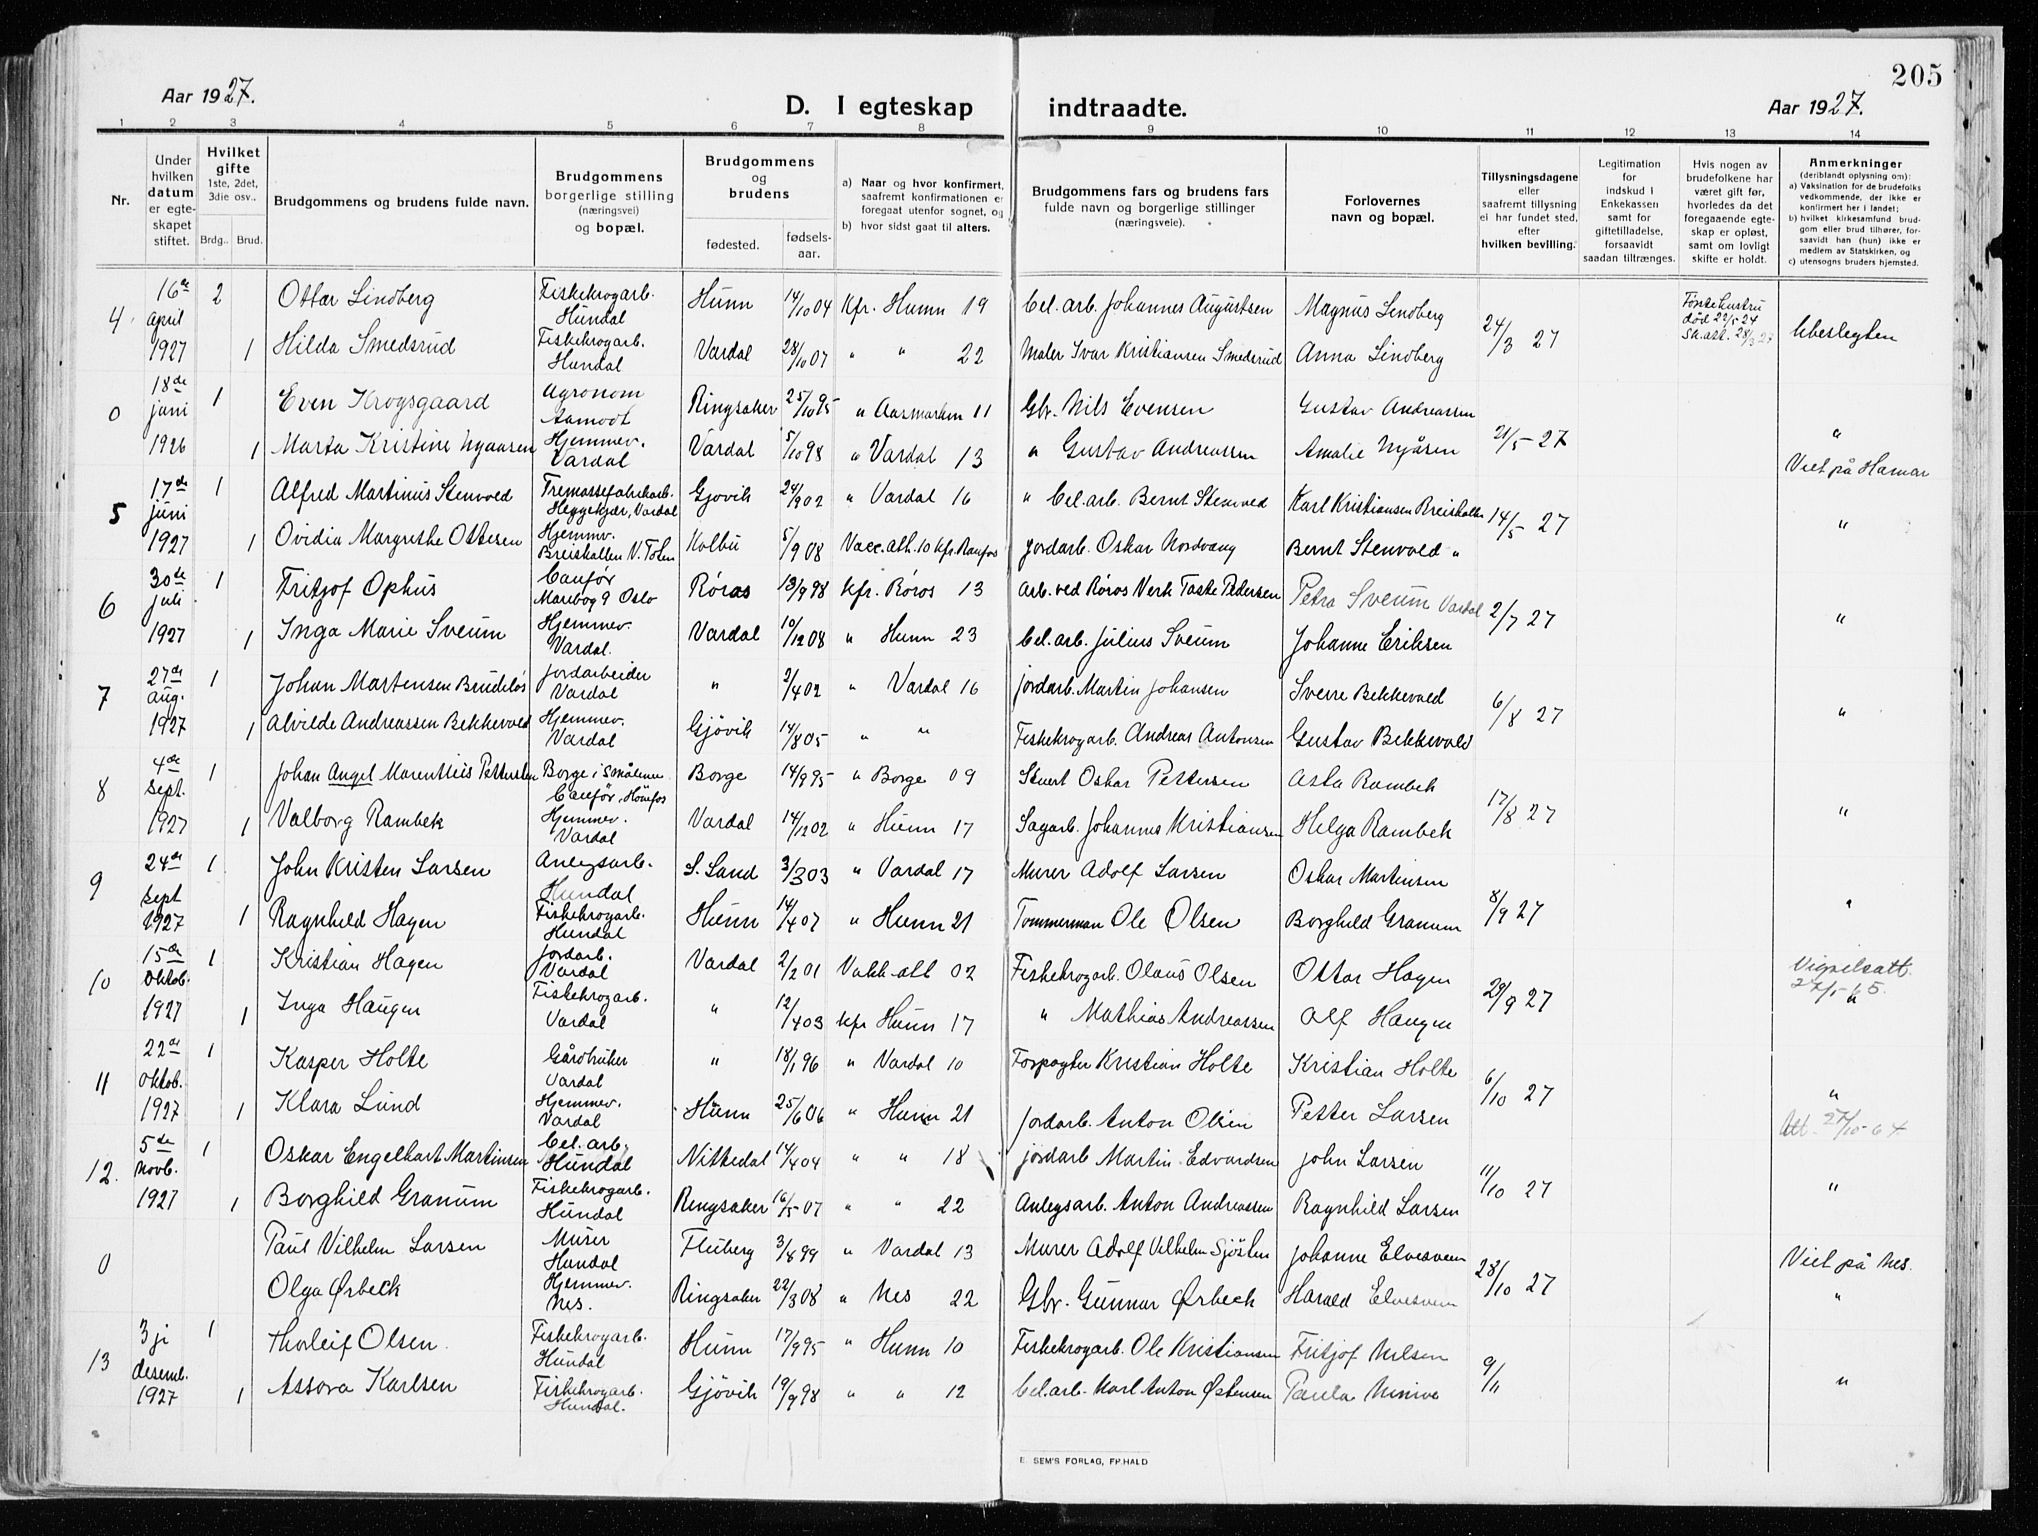 205
Aar 1927.
D. I egteskap indtraadte.
Aar 1927.
1 2 3 4 5 6 7 8 9 10 11 12 13 14
Nr.
Under hvilken datum er egteskapet stiftet.
Hvilket gifte 1ste, 2det, 3die osv..
Brdg.. Brud.
Brudgommens og brudens fulde navn.
Brudgommens borgerlige stilling (næringsvei) og bopæl.
Brudgommens og brudens
fødested. fødselsaar.
a) Naar og hvor konfirmert, saafremt konfirmationen er foregaat utenfor sognet, og
b) hvor sidst gaat til alters.
Brudgommens fars og brudens fars fulde navn og borgerlige stillinger (næringsveie).
Forlovernes navn og bopæl.
Tillysningsdagene eller saafremt tillysning ei har fundet sted, efter hvilken bevilling.
Legitimation for indskud i Enkekassen samt for giftetilladelse, forsaavidt saadan tiltrænges.
Hvis nogen av brudefolkene har været gift før, hvorledes da det foregaaende egteskap er opløst, samt om lovligt skifte er holdt.
Anmerkninger (deriblandt oplysning om):
a) Vaksination for de brudefolks vedkommende, der ikke er konfirmert her i landet;
b) hvilket kirkesamfund brudgom eller brud tilhører, forsaavidt han (hun) ikke er medlem av Statskirken, og
c) utensogns bruders hjemsted.
4 16de April 1927 2 Ottar Lindberg Fiskekrogarb. Hundal Hunn 14/10 04 Kfr. Hunn 19 Cel. arb. Johannes Augustsen Magnus Lindberg 24/3 27 Første hustru død 22/5 24 Sk.att. 28/3 27 Ubeslegten
1 Hilda Smedsrud Fiskekrogarb. Hundal Vardal 28/10 07 " " 22 Maler Ivar Kristiansen Smedsrud Anna Lindberg
0 18de juni 1926 1 Even Krogsgaard Agronom Aamodt Ringsaker 25/10 95 " Aasmarken 11 Gbr. Nils Evensen Gustav Andreassen 21/5 - 27 "
1 Marta Kristine Nyaasen Hjemmev. Vardal Vardal 5/10 98 " Vardal 13 " Gustav Andreassen Amalie Nyåsen Viet på Hamar
5 17de juni 1927 1 Alfred Martinus Stenvold Tremassefabrikarb. Heggekjær, Vardal Gjøvik 24/9 02 " Vardal 16 " Cel. arb. Bernt Stenvold Karl Kristiansen Breiskallen 14/5 27 "
1 Ovidia Margrethe Ottesen Hjemmv. Breiskallen V. Toten Kolbu 5/9 08 Vacc. ath. 10 kfr. Raufos Jordarb. Oskar Nordvang Bernt Stenvold "
6 30de juli 1927 1 Fritjof Ophus Canfør Marebog 9 Oslo Røros 13/9 98 Kfr. Røros 13 Arb. ved Røros Verk Taste Pedersen Petra Sveum Vardal 2/7 27 "
1 Inga Marie Sveum Hjemmev. Vardal. Vardal 10/12 08 " Hunn 23 Cel. arb. Julius Sveum Johanne Eriksen
7 27de Aug. 1927 1 Johan Martensen Brudeløs Jordarbeider Vardal " 2/4 02 " Vardal 16 Jordarb. Martin Johansen Sverre Bekkevold 6/8 27 "
1 Alvilde Andreassen Bekkevold Hjemmev. Vardal Gjøvik 14/8 05 " " Fiskekrogarb. Andreas Antonsen Gustav Bekkevold
8 4de Sept. 1927 1 Johan Angel Marenthius Pettersen Borge i Smålene Canfør, Hönefos Borge 14/9 95 " Borge 09 Stuert Oskar Pettersen Asta Rambek 17/8 27 "
1 Valborg Rambek Hjemmev. Vardal Vardal 14/12 02 " Hunn 17 Sagarb. Johannes Kristiansen Helga Rambek
9 24de Sept 1927 1 John Kristen Larsen Anlegsarb. Hundal S. Land 3/3 03 " Vardal 17 Murer Adolf Larsen Oskar Martinsen 8/9 27 "
1 Ragnhild Hagen Fiskekrogarb. Hundal Hunn 14/4 07 " Hunn 21 Tommerman Ole Olsen Borghild Granum
10 15de Oktob. 1927 1 Kristian Hagen Jordarb. Vardal Vardal 2/2 01 Vakk. att 02 Fiskekrogarb. Olaus Olsen Ottar Hagen 29/9 27 Vigselsatt. 24/5 65. "
1 Inga Haugen Fiskekrogarb. Vardal " 12/4 03 kfr Hunn 17 " Mathias Andreassen Alf Haugen
11 22de Oktob. 1927 1 Kasper Holte Gårdbruker Vardal " 18/1 96 " Vardal 10 Forpagter Kristian Holte Kristian Holte 6/10 27 "
1 Klara Lund Hjemmev. Vardal Hunn 25/6 06 " Hunn 21 Jordarb. Anton Olsen Petter Larsen Att. 27/10-64
12. 5de Novb. 1927 1 Oskar Engelhart Martinsen Cel. arb. Hundal Nittedal 14/4 04 " " 18 Jordarb Martin Edvardsen John Larsen 11/10 27 "
1 Borghild Granum Fiskekrogarb. Hundal Ringsaker 16/5 07 " " 22 Anlegsarb. Anton Andreassen Ragnhild Larsen
0 Paul Vilhelm Larsen Murer Hundal Fluberg 3/8 99 " Vardal 13 Murer Adolf Vilhelm Sjösten Johanne Elvesveen 28/10 27 Viet på Nes.
Olga Ørbeck Hjemmev. Nes. Ringsaker 22/3 08 " Nes 22 Gbr. Gunnar Ørbeck Harald Elvesveen "
13 3ji desemb. 1927 1 Thorleif Olsen Fiskekrogarb. Hundal Hunn 17/9 95 " Hunn 10 Fiskekrogarb. Ole Kristiansen Fritjof Nilsen 9/11 "
1 Assora Karlsen Fiskekrogarb. Hundal. Gjøvik 19/9 98 " " 12 Cel. arb. Karl Anton Østensen Paula
E. SEM'S FORLAG, FR.HALD